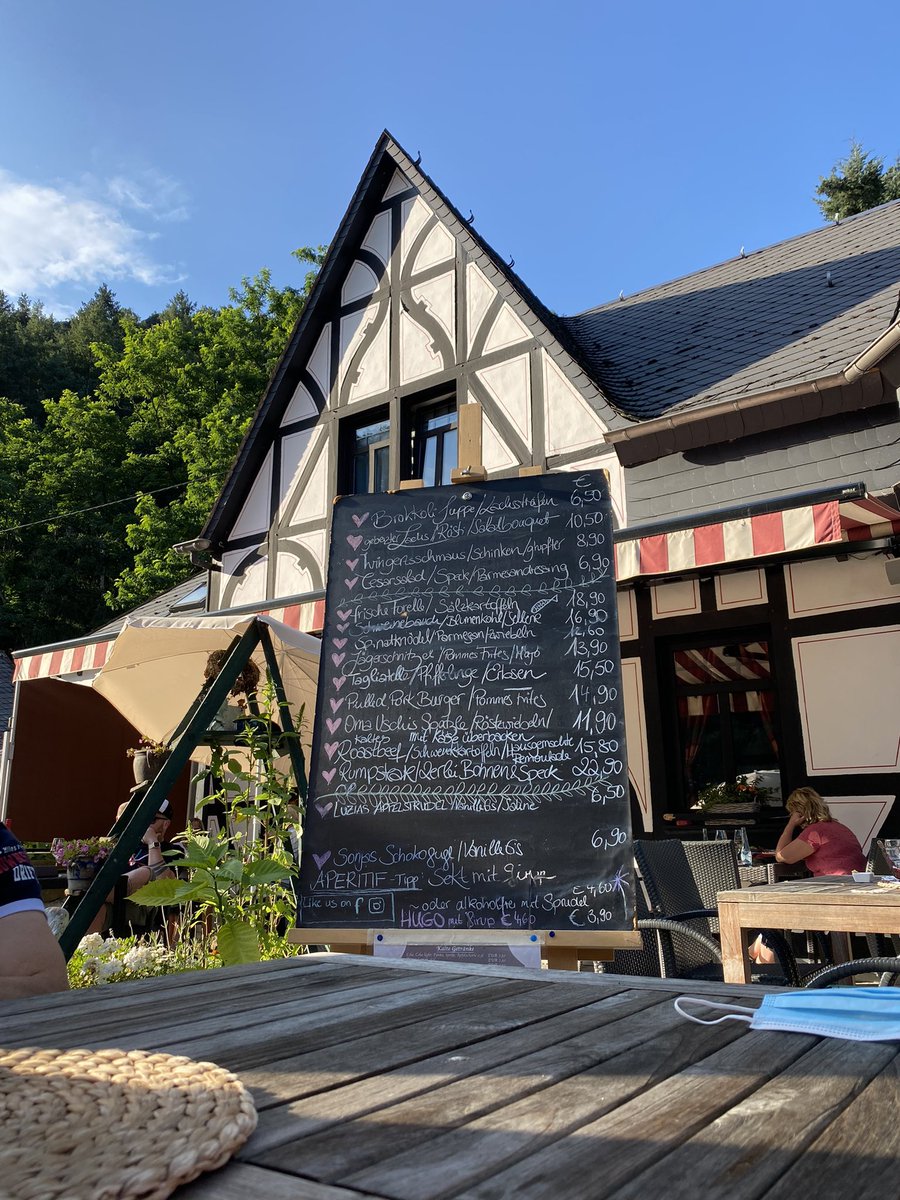 €
Brokkoli Suppe/Lachsstreifen 6,50
gebeizter Lachs/Rösti/Salatbouquet 10,50
Wingertsschmaus/Schinken/ 8,90
Cesarsalad/Speck/Parmesandressing 6,90
frische Forelle/Salzkartoffeln 18,90
Schweinebauch/Blumenkohl/Sellerie 16,90
Spinatknödel/Parmesan/Zwiebeln 12,60
Jägerschnitzel/Pommes Frites/Mayo 13,90
Tagliatelle/Pfifferlinge/Erbsen 15,50
Pulled Pork Burger/Pommes Frites 14,90
Oma Uschi's Spätzle/Röstzwiebeln/ 11,90
mit Käse überbacken
Roastbeef/Schwenkkartoffeln/Hausgemachte Remoulade 15,80
Rumpsteak/ Bohnen & Speck 22,90
LUZIAS APFELSTRUDEL/Vanilleeis/Sahne 6,50
Sonjas Schokogugl/Vanilleeis 6,90
APERITIF-Tipp: Sekt mit € 4,60
Like us on f - oder alkoholfrei mit Sprudel € 3,90
HUGO mit Sirup € 4,60
Kalte Getränke